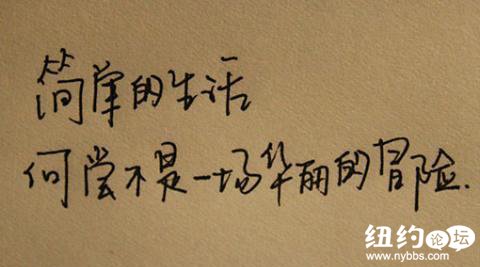 简单的生活
何尝不是一场华丽的冒险.
纽约论坛
www.nybbs.com